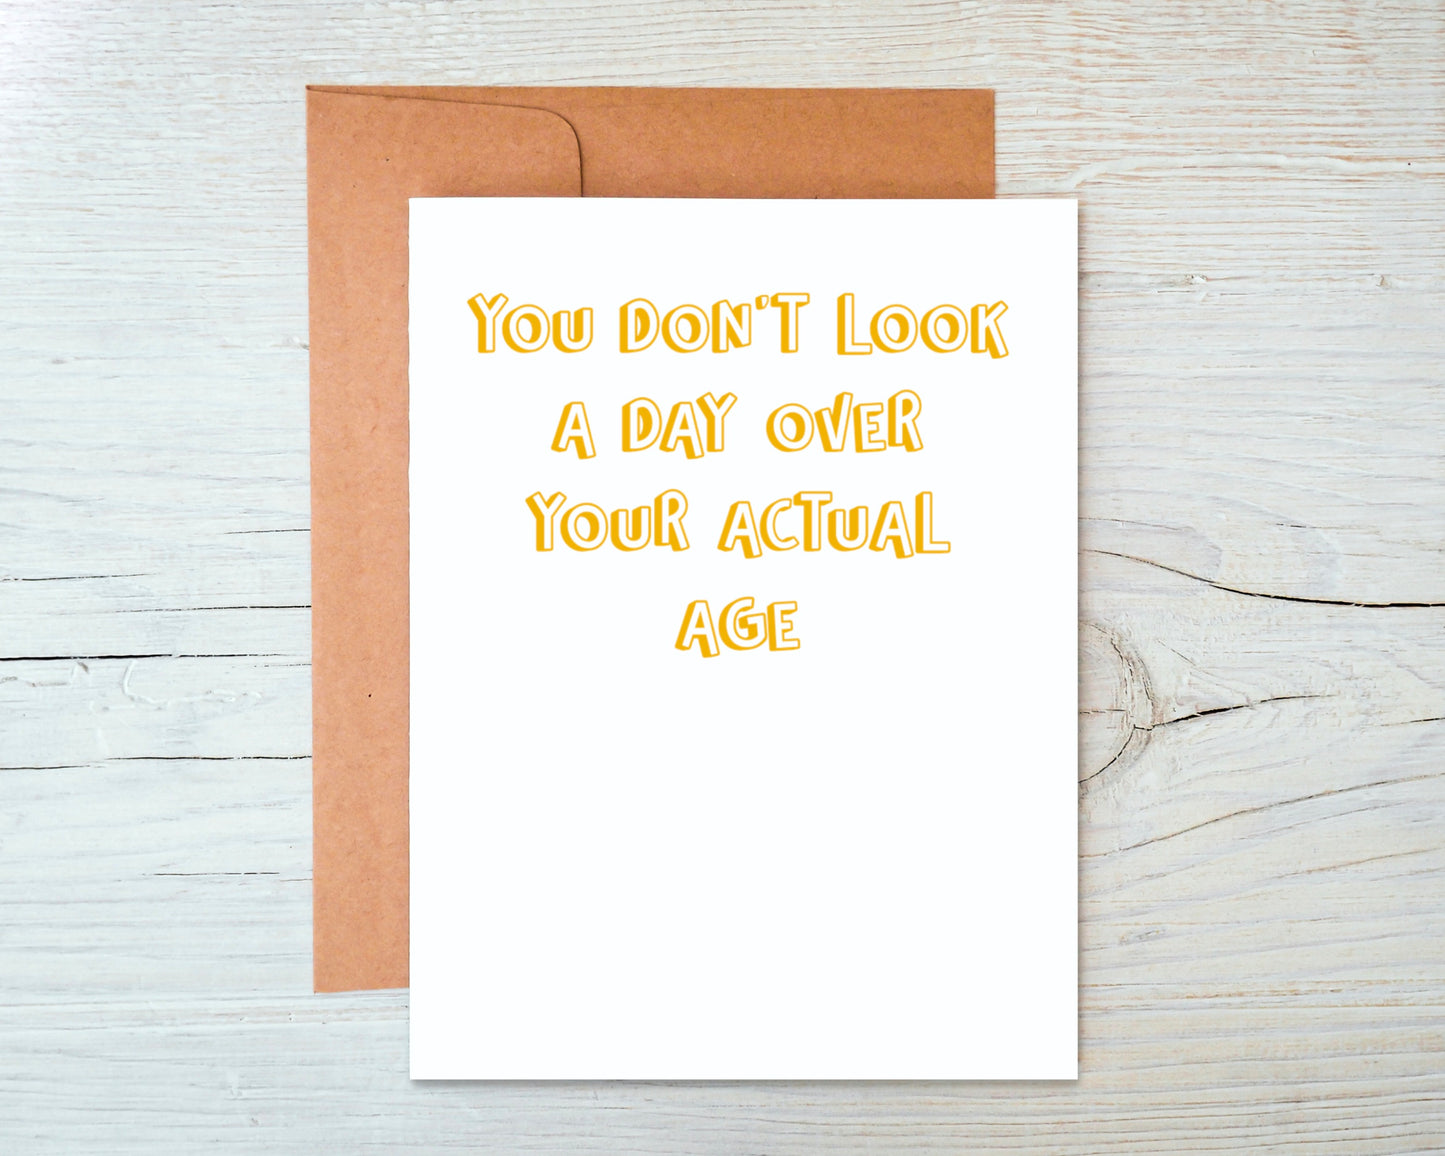 YOU DON'T LOOK
A DAY OVER
YOUR ACTUAL
AGE